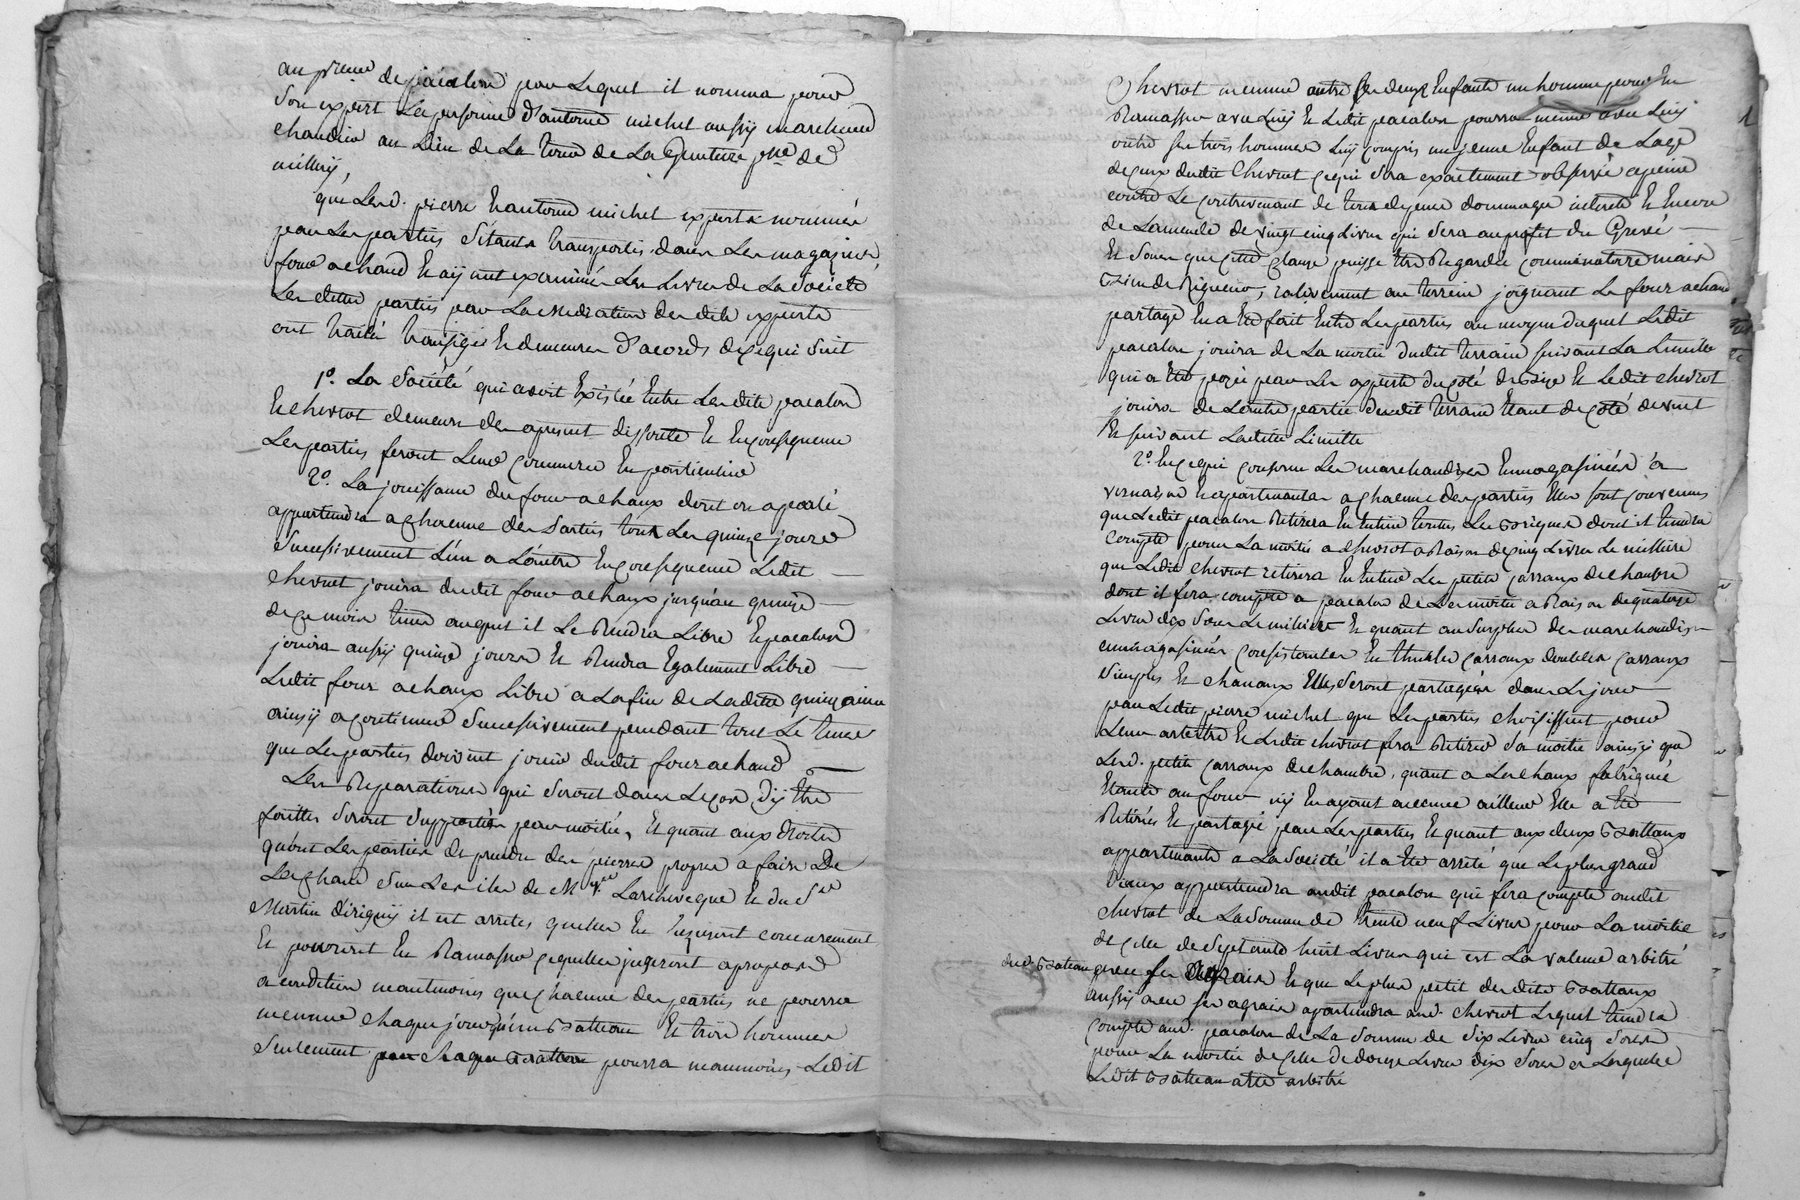 au de pacalon par lequel il nomma pour
son expert la personne d'antoine michel aussy marchand
chandier au lieu de la tour de la Guste psse de
millery,
que lesd. pierre & antoine michel experts nommés
par les parties s'etants transportés dans les magazins
four a chaud & ayant examiné les livres de la société
lesdittes parties par la mediation desdits experts
ont traité transigé & demeurés d'acords de ce qui suit
1o. La société qui avoit Existée Entre lesdits pacalon
& chevrot demeure des apresent dissoute & En consequence
les parties feront leur commerce En particulier
2o. La jouissance du four a chaux dont on a parlé
appartiendra a chacune des parties tous les quinze jours
successivement l'un a l'autre En consequence ledit
chevrot jouira dudit four a chaux jusqu'au quinze
de ce mois tems auquel il le rendra libre & pacalon
jouira aussy quinze jours & rendra Egalement libre
ledit four a chaux libre a la fin de ladite quinzaine
ainsy a continuer successivement pendant tout le tems
que les parties doivent jouir dudit four a chaud
Les reparations qui seront dans le cas d'y être
faittes seront supportés par moitié, & quant aux droits
qu'ont les parties de prendre des pierres propres a faire de
la chaud sur les iles de Mgr. Larcheveque & du Sr
Martin d'irigny il est arrêtés qu'elles En useront concurement
& pourront En Ramasser ce qu'elles jugeront a propos
a condition neantmoins que chacune des parties ne pourra
menner chaque jour qu'un Batteau & trois hommes
seulement pourra neanmoins ledit
Chevrot menner outre ses deux Enfants un homme pour En
Ramasser avec luy & ledit pacalon pourra menner avec luy
outre ses trois hommes luy compris un jeune Enfant de l'age
de ceux dudit Chevrot ce qui sera exactement observé a peine
contre le contrevenant de tous depens dommages interets & Encore
de l'amende de vingt cinq livres qui sera au profit du Grevé
& sans que cette clause puisse être regardée comminatoire mais
Bien de rigueur, rativement au terrein joignant le four a chaud
partage En a été fait Entre les parties au moyen duquel ledit
pacalon jouira de la moitié dudit terrain suivant la limitte
qui a été posée par les experts du coté de Bize & ledit chevrot
jouira de l'autre partie dudit terrain Etant de coté de vent
& suivant laditte limitte
2o. En ce qui concerne les marchandises Emmagasinées a
vernaison & apartenantes a chacune des parties Elles sont convenus
que ledit pacalon retirera En Entier toutes les Briques dont il tiendra
compte pour la moitié a chevrot a Raison de cinq livres le milliere
que ledit chevrot retirera En Entier les petits carraux de chambre
dont il fera compte a pacalon de la moitié a Raison de quatorze
livres dix sous le millier & quant au surplus des marchandises
emmagasinées consistantes En thuiles carraux doubles carraux
simples & chanaux Elles seront partagées dans le jour
par ledit pierre michel que les parties choisissent pour
leur arbitre & ledit chevrot fera Retirer sa moitié ainsy que
lesd. petits carraux de chambre, quant a la chaux fabriquée
Etante au four n'y En ayant aucune ailleur Elle a été
Retirés & partagé par les parties & quant aux deux Battaux
appartenants a la société il a été arreté que le plus grand
vieux appartiendra audit pacalon qui fera compte audit
chevrot de la somme de trente neuf livres pour la moitié
de celle de septante huit livres qui est la valeur arbitré
dud. Bateau avec ses agrais & que le plus petit desdits Battaux
aussy avec ses agrais apartiendra aud. chevrot lequel tiendra
compte aud. pacalon de la somme de six livres cinq sous
pour la moitié de celle de douze livres dix sous a laquelle
ledit Batteau a été arbitré